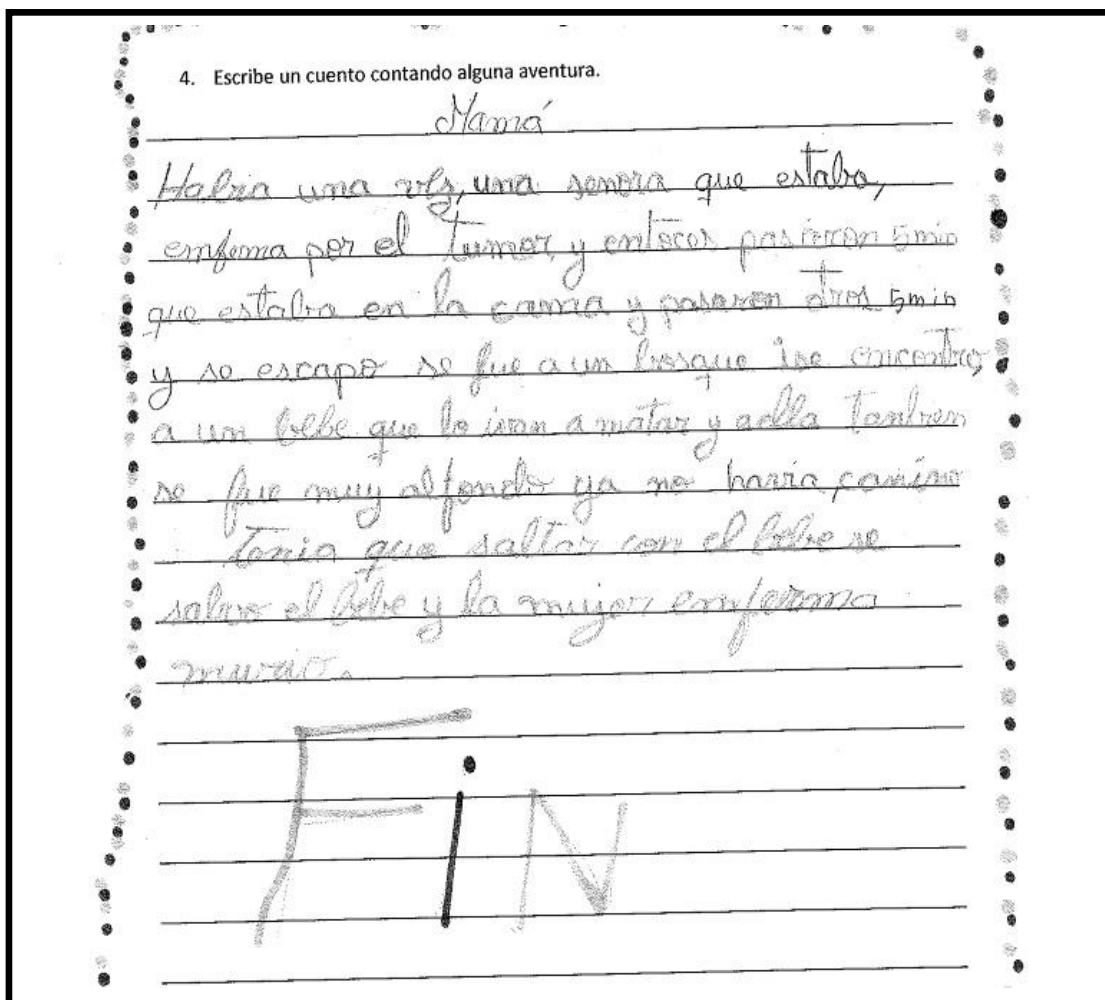 4. Escribe un cuento contando alguna aventura.
Mamá
Habia una vez, una senora que estaba,
emfema por el tumor y entoces pasaron 5 min
que estaba en la cama y pasaron otros 5 min
y se escapo se fue a un bosque ise encontro,
a un bebe que lo ivan a matar y aella tanbien
se fue muy al fondo ya no havia, camino
tenia que saltar con el bebe se
salvo el bebe y la mujer emferma
murio.
FiN